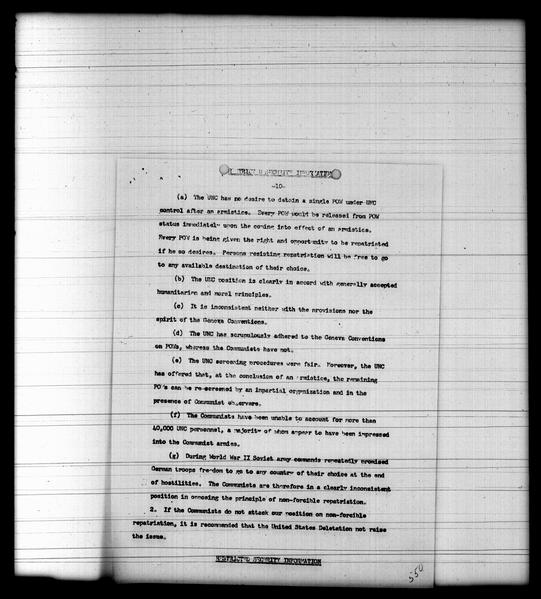 -10-
(a) The UNC has no desire to detain a single POW under UNC
control after an armistice. Every POW would be released from POW
status immediately upon the coming into effect of an armistice.
Every POW is being given the right and opportunity to be repatriated
if he so desires. Persons resisting repatriation will be free to go
to any available destination of their choice.
(b) The UNC position is clearly in accord with generally accepted
humanitarian and moral principles.
(c) It is inconsistent neither with the provisions nor the
spirit of the Geneva Conventions.
(d) The UNC has scrupulously adhered to the Geneva Conventions
on POWs, whereas the Communists have not.
(e) The UNC screening procedures were fair. Moreover, the UNC
has offered that, at the conclusion of an armistice, the remaining
PO's can be re-screened by an impartial organization and in the
presence of Communist observers.
(f) The Communists have been unable to account for more than
40,000 UNC personnel, a majority of whom appear to have been impressed
into the Communist armies.
(g) During World War II Soviet army commands repeatedly promised
German troops freedom to go to any country of their choice at the end
of hostilities. The Communists are therefore in a clearly inconsistent
position in opposing the principle of non-forcible repatriation.
2. If the Communists do not attack our position on non-forcible
repatriation, it is recommended that the United States Delegation not raise
the issue.
SECURITY INFORMATION
550